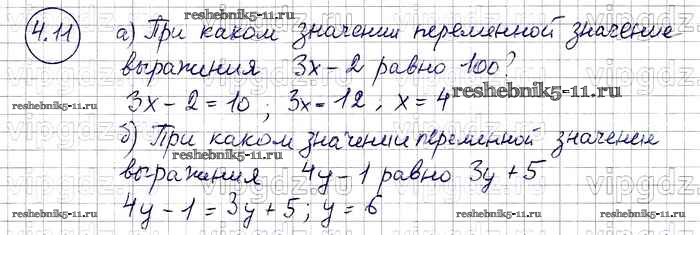 reshebnik5-11.ru
4.11 а) При каком значении переменной значение
выражения 3x - 2 равно 100?
3x - 2 = 10 ; 3x = 12 , x = 4 reshebnik5-11.ru
б) При каком значении переменной значение
reshebnik5-11.ru
выражения 4y - 1 равно 3y + 5
4y - 1 = 3y + 5 ; y = 6
reshebnik5-11.ru reshebnik5-11.ru
vipgdz.ru